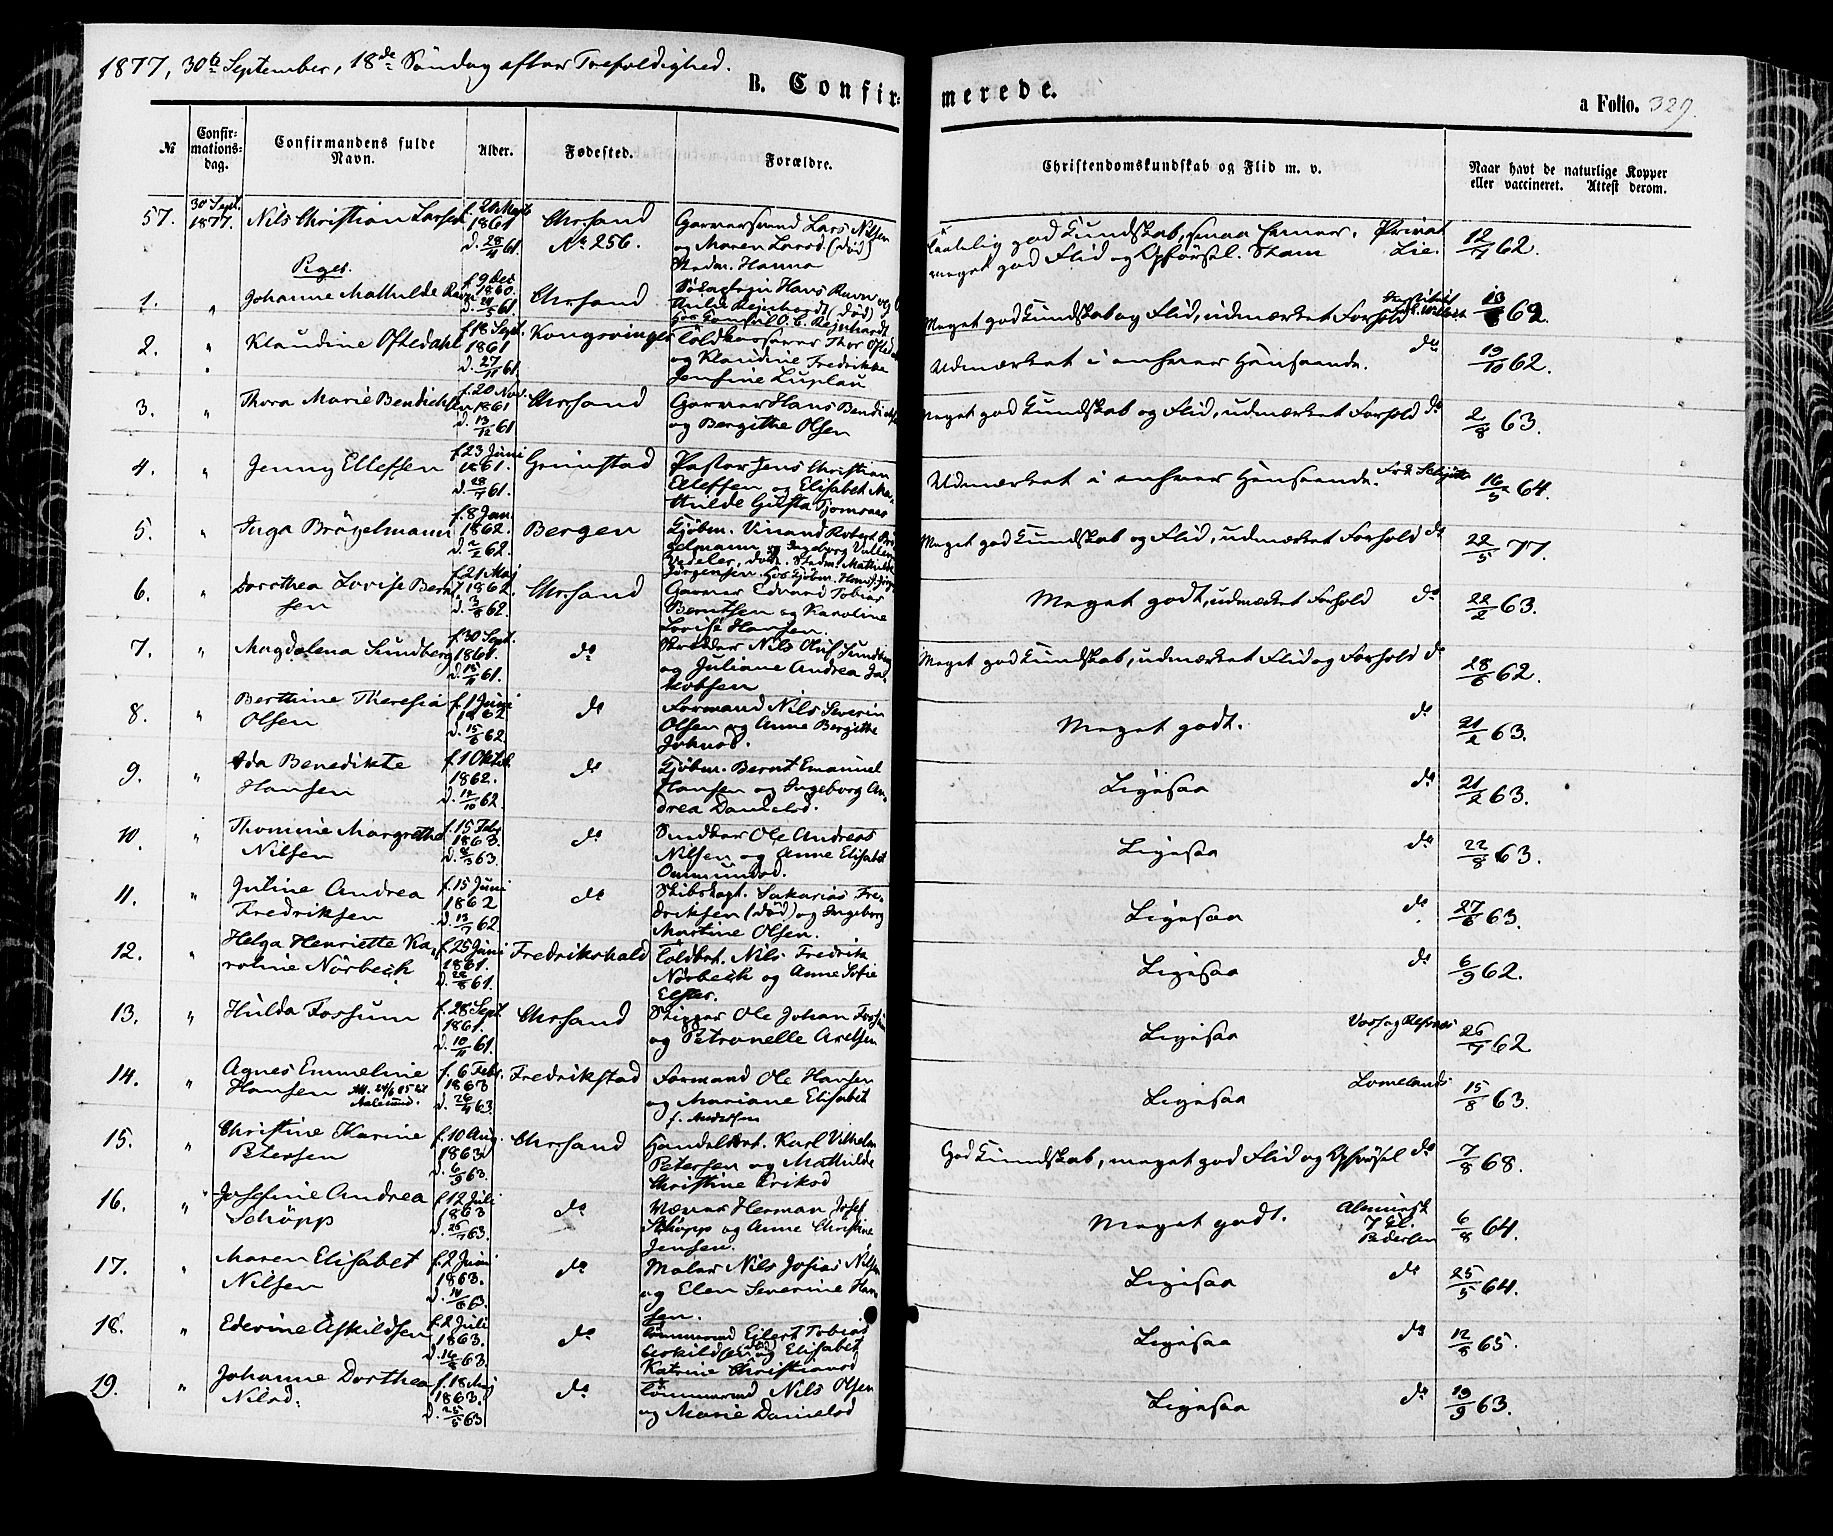 1877, 30te September, 18de Søndag efter Trefoldighed.
B. Confir-
merede.
a Folio. 329.
№
Confir-
mations-
dag.
Confirmandens fulde
Navn.
Alder.
Fødested.
Forældre.
Christendomskundskab og Flid m. v.
Naar havt de naturlige Kopper
eller vaccineret. Attest derom.
57. 30 Sept. 1877. Nils Christian Larsen
1861 d. 28/4 61.
Chrsand
No 256.
Garversvend Lars Nilsen
og Maren Larsd. (død)
Stedm. Hanna
Taalelig god Kundskab,
meget god Flid og Opførsel.
Privat
Lie.
12/7 62.
Piger.
1. " Johanne Mathilde Ravn
f. 9 Dec
1860.
d. 24/5 61.
Chrsand
Hans Ravn og
(død)
hos Consul O. C. Reinhardt
Meget god Kundskab og Flid, udmærket Forhold
62.
2. " Klaudine Oftedahl
f. 18 Sept.
1861
d. 27/11 61.
Kongsvinger
Toldkasserer Thor Oftedahl
og Klaudine Fredrikke
Jensine Luplau
Udmærket i enhver Henseende.
do
19/10 62.
3. " Thora Marie Bendichsen
f. 20 Nov.
1861
d. 13/12 61
Chrsand
Garver Hans Bendichsen
og Bergithe Olsen
Meget god Kundskab og Flid, udmærket Forhold do
2/8 63.
4. " Jenny Elleffen
f. 23 Juni
1861.
d. 28/7 61.
Grimstad
Pastor Jens Christian
Elleffen og Elisabet Ma-
thilde Gusta Tjomsaas
Udmærket i enhver Henseende.
16/5 64.
5. " Inga Brögelmann
f. 8 Jan.
1862.
d. 2/2 62.
Bergen
Kjøbm. Vinand Robert Brö-
gelmann og Ingeborg
Vedeler, død. Stedm. Mathilde
Jørgensen.
Meget god Kundskab og Flid, udmærket Forhold do
22/5 77.
6. " Dorothea Lovise Bernt-
sen
f. 21 Maj
1862.
d. 3/8 62.
Chrsand
Garver Edvard Tobias
Berntsen og Karoline
Lovise Hansen.
Meget godt, udmærket Forhold do
22/2 63.
7. " Magdalena Sundberg
f. 30 Sept.
1861.
d. 15/11 61.
do
Skrædder Nils Oluf Sundberg
og Juliane Andrea Ja-
kobsen
Meget god Kundskab, udmærket Flid og Forhold do
28/6 62.
8. " Berthine Theresia
Olsen
f. 1 Juni
1862
d. 15/6 62
do
Formand Nils Severin
Olsen og Anne Bergithe
Johnsd.
Meget godt. do
21/2 63.
9. " Ada Benedikte
Hansen
f. 1 Oktob.
1862.
d. 12/10 62.
do
Kjøbm. Bernt Emanuel
Hansen og Ingeborg An-
drea Danielsd.
Ligesaa do
21/2 63.
10. " Thomine Margrethe
Nilsen
f. 15 Feb.
1863
d. 8/3 63.
do
Snedker Ole Andreas
Nilsen og Anne Elisabet
Ommundsd.
Ligesaa do
22/8 63.
11. " Juline Andrea
Fredriksen
f. 15 Juni
1862
d. 13/7 62
do
Skibskapt. Sakarias Fre-
driksen (død) og Ingeborg
Martine Olsen.
Ligesaa do
27/6 63.
12. " Helga Henriette Ka-
roline Nörbech
f. 25 Juni
1861.
d. 22/8 61.
Fredrikshald
Toldbet. Nils Fredrik
Nörbech og Anne Sofie
Elster.
Ligesaa do
6/9 62.
13. " Hulda Fossum
f. 28 Sept.
1861.
d. 10/11 61.
Chrsand
Skipper Ole Johan Fossum
og Petronelle Axelsen
Ligesaa
26/7 62
14. " Agnes Emmeline
Hansen
Aalesund.
f. 6 Febr.
1863
d. 26/4 63.
Fredrikstad
Formand Ole Hansen
og Mariane Elisabet
f. Andersen
Ligesaa
Lomelands
15/8 63.
15. " Christine Karine
Petersen
f. 10 Aug.
1863
d. 6/9 63.
Chrsand
Handelsbet. Karl Vilhelm
Petersen og Mathilde
Christine Eriksd
God Kundskab, meget god Flid og Opførsel do
7/8 68.
16. " Josefine Andrea
Schöpp
f. 12 Juli
1863
d. 26/7 63.
do
Væver Herman Josef
Schöpp og Anne Christine
Jensen.
Meget godt.
Almuesk
7 Kl.
Pedersen
6/8 64.
17. " Maren Elisabet
Nilsen
f. 2 Juni
1863.
d. 14/6 63.
do
Maler Nils Josias Nilsen
og Elen Severine Han-
sen.
Ligesaa do
25/5 64.
18. " Ederine Askildsen
f. 2 Juli
1863.
d. 16/8 63.
do
Tømmermd Eilert Tobias
Askildsen og Elisabet
Katrine Christiansd
Ligesaa do
12/8 65.
19. " Johanne Dorthea
Nilsd.
f. 18 Maj
1863.
d. 25/5 63
do
Tømmermd Nils Olsen
og Marie Danielsd
Ligesaa do
19/9 63.